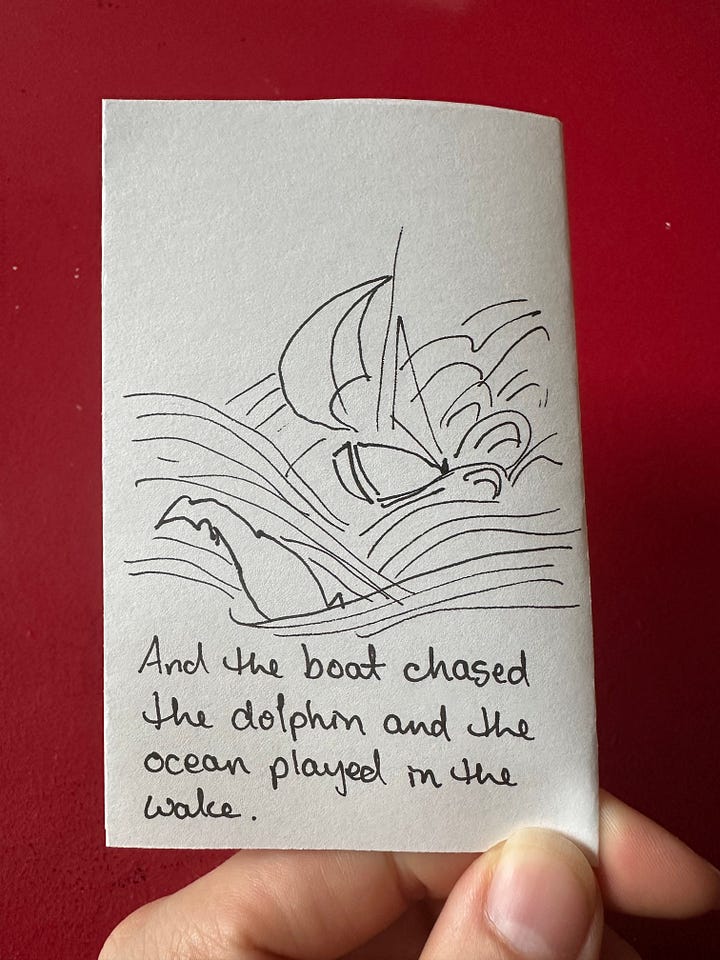 And the boat chased
the dolphin and the
ocean played in the
wake.